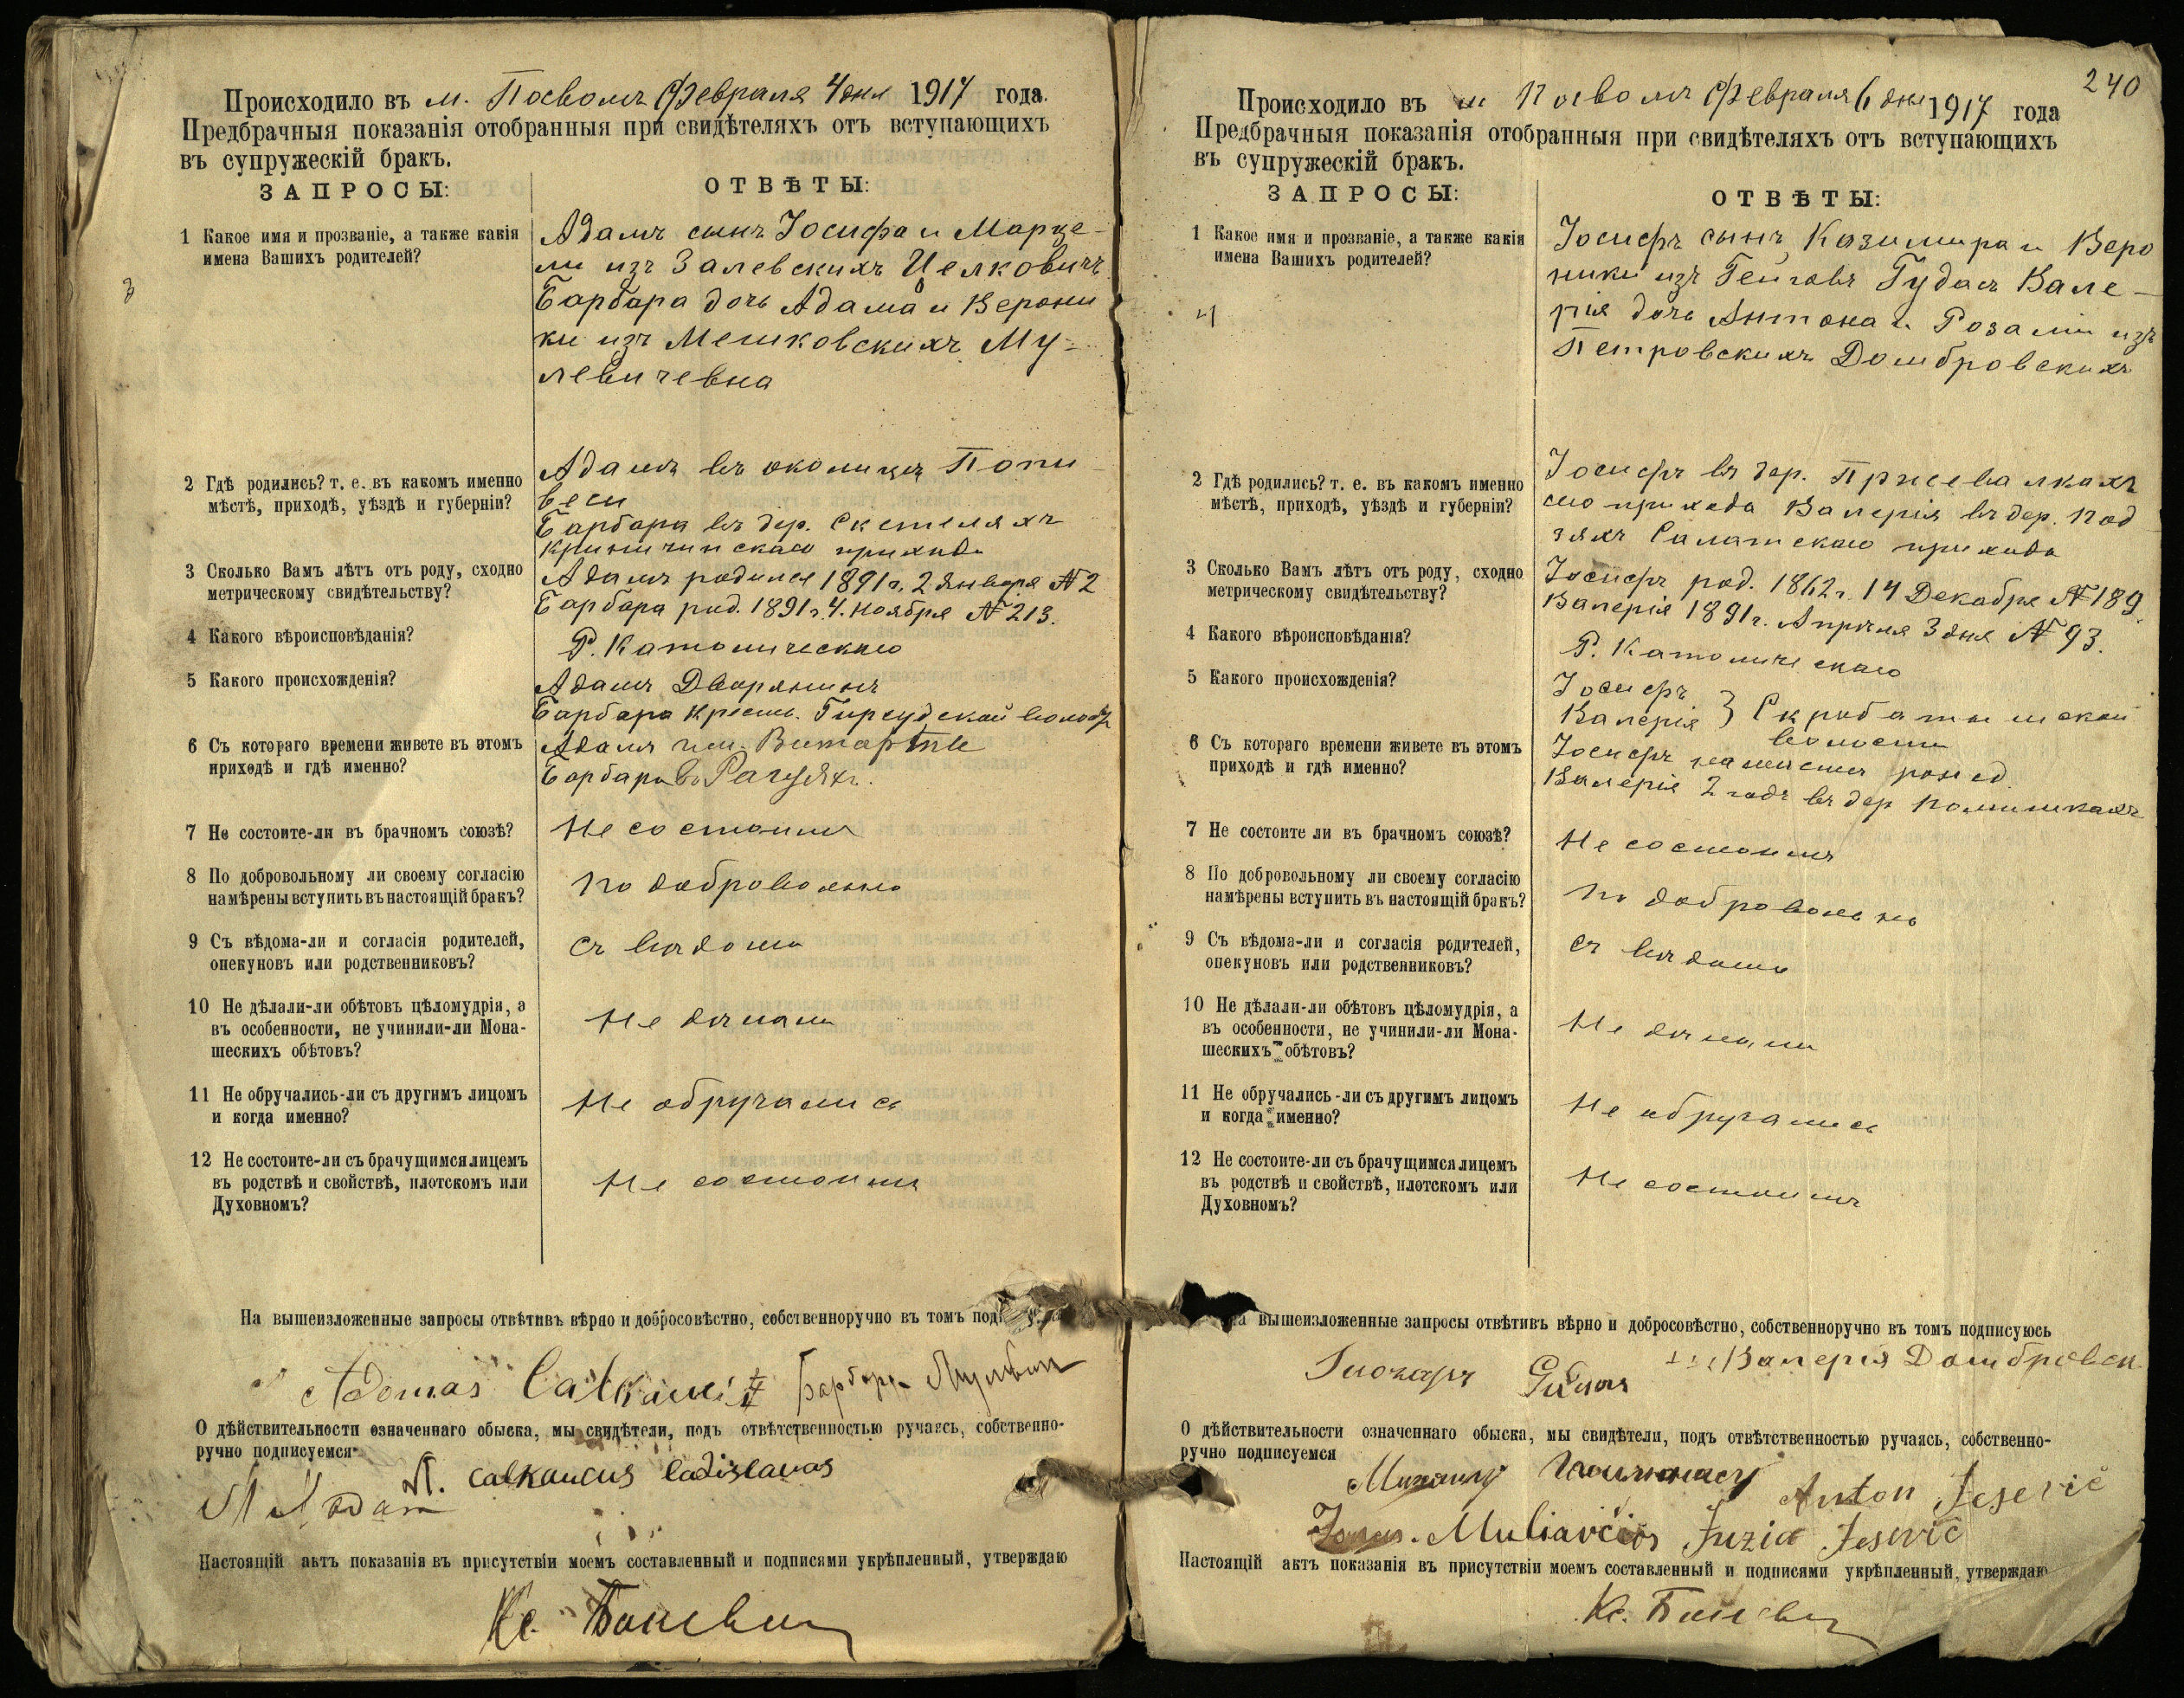 Происходило въ м. Посволѣ Февраля 4 дня 1917 года.
Предбрачныя показанія отобранныя при свидѣтеляхъ отъ вступающихъ
въ супружескій бракъ.
ЗАПРОСЫ: ОТВѢТЫ:
1 Какое имя и прозваніе, а также какія
имена Вашихъ родителей?
Адамъ сынъ Іосифа и Марце-
ли изъ Залевскихъ Целковичъ
Барбара дочь Адама и Верони
ки изъ Мешковскихъ Му-
левичевна
3
2 Гдѣ родились? т. е. въ какомъ именно
мѣстѣ, приходѣ, уѣздѣ и губерніи?
Адамъ въ околицѣ Попи
веси
Барбара въ дер. Скетеляхъ
Криничинскаго прихода
3 Сколько Вамъ лѣтъ отъ роду, сходно
метрическому свидѣтельству?
Адамъ родился 1891 г. 2 Января № 2
Барбара род. 1891 г. 4. Ноября № 213.
4 Какого вѣроисповѣданія?
Р. Католическаго
5 Какого происхожденія?
Адамъ Дворянинъ
Барбара крест. Гирсудской волости
6 Съ котораго времени живете въ этомъ
приходѣ и гдѣ именно?
Адамъ
Барбара въ
7 Не состоите-ли въ брачномъ союзѣ?
Не состоимъ
8 По добровольному ли своему согласію
намѣрены вступить въ настоящій бракъ?
По добровольно
9 Съ вѣдома-ли и согласія родителей,
опекуновъ или родственниковъ?
Съ вѣдома
10 Не дѣлали-ли обѣтовъ цѣломудрія, а
въ особенности, не учинили-ли Мона-
шескихъ обѣтовъ?
Не дѣлали
11 Не обручались-ли съ другимъ лицомъ
и когда именно?
Не обручались
12 Не состоите-ли съ брачущимся лицемъ
въ родствѣ и свойствѣ, плотскомъ или
Духовномъ?
Не состоимъ
На вышеизложенные запросы отвѣтивъ вѣрно и добросовѣстно, собственноручно въ томъ
Adomas Барбара
О дѣйствительности означеннаго обыска, мы свидѣтели, подъ отвѣтственностью ручаясь, собственно-
ручно подписуемся
calkaucus ladislavas
Настоящій актъ показанія въ присутствіи моемъ составленный и подписями укрѣпленный, утверждаю
Кс.
240
Происходило въ м Посволѣ Февраля 6 дня 1917 года
Предбрачныя показанія отобранныя при свидѣтеляхъ отъ вступающихъ
въ супружескій бракъ.
ЗАПРОСЫ: ОТВѢТЫ:
1 Какое имя и прозваніе, а также какія
имена Вашихъ родителей?
Іосифъ сынъ Казимира и Веро
ники изъ Гейговъ Гудасъ Вале-
рія дочь Антона и Розаліи изъ
Петровскихъ Домбровскихъ
4
2 Гдѣ родились? т. е. въ какомъ именно
мѣстѣ, приходѣ, уѣздѣ и губерніи?
Іосифъ въ дер. Пржевалкахъ
сего прихода Валерія въ дер. Под
зяхъ Салатскаго прихода
3 Сколько Вамъ лѣтъ отъ роду, сходно
метрическому свидѣтельству?
Іосифъ род. 1862 г. 14 Декабря № 189.
Валерія 1891 г. Апрѣля 3 дня № 93.
4 Какого вѣроисповѣданія?
Р. Католическаго
5 Какого происхожденія?
Іосифъ
Валерія } Скробатышской
волости
6 Съ котораго времени живете въ этомъ
приходѣ и гдѣ именно?
Іосифъ на мѣстѣ рожд.
Валерія 2 года въ дер Помишкахъ
7 Не состоите ли въ брачномъ союзѣ?
Не состоимъ
8 По добровольному ли своему согласію
намѣрены вступить въ настоящій бракъ?
По добровольно
9 Съ вѣдома-ли и согласія родителей,
опекуновъ или родственниковъ?
Съ вѣдома
10 Не дѣлали-ли обѣтовъ цѣломудрія, а
въ особенности, не учинили-ли Мона-
шескихъ обѣтовъ?
Не дѣлали
11 Не обручались-ли съ другимъ лицомъ
и когда именно?
Не обручались
12 Не состоите-ли съ брачущимся лицемъ
въ родствѣ и свойствѣ, плотскомъ или
Духовномъ?
Не состоимъ
вышеизложенные запросы отвѣтивъ вѣрно и добросовѣстно, собственноручно въ томъ подписуюсь
Валерія Домбровск
О дѣйствительности означеннаго обыска, мы свидѣтели, подъ отвѣтственностью ручаясь, собственно-
ручно подписуемся
Anton Jesevič
Muliavčios Juzia Jesevic
Настоящій актъ показанія въ присутствіи моемъ составленный и подписями укрѣпленный, утверждаю
Кс.